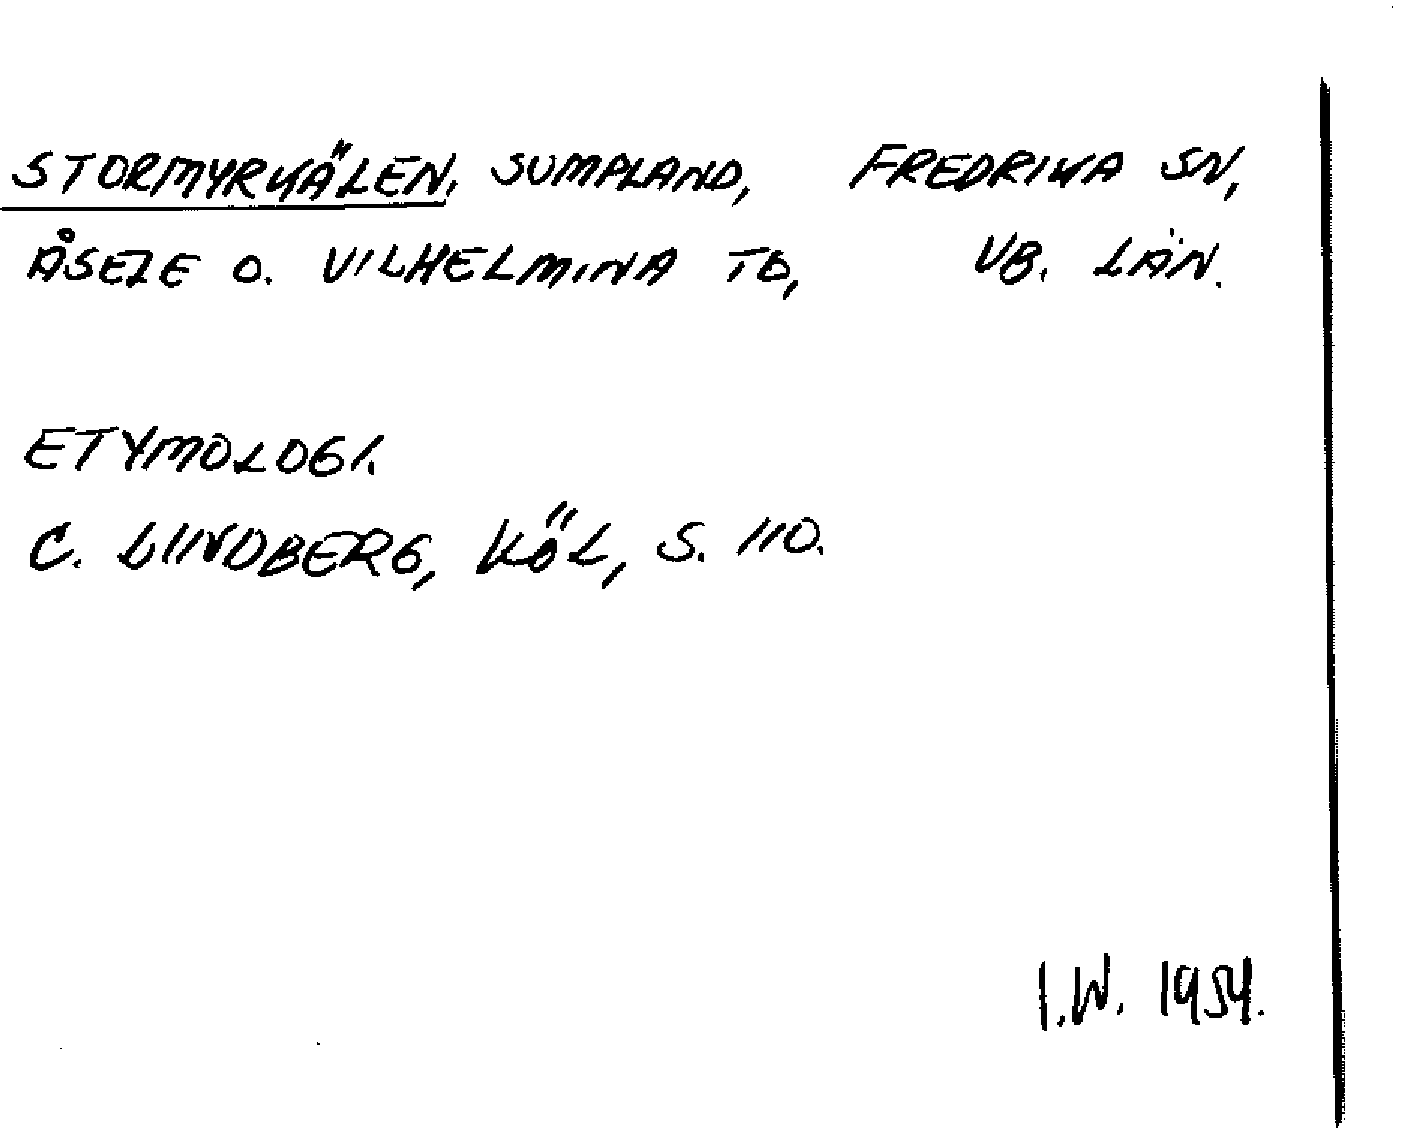 STORMYRKÄLEN, SUMPLAND, FREDRIKA SN,
ÅSELE O. VILHELMINA TB, VB. LÄN.
ETYMOLOGI.
C. LINDBERG, KÖL, S. 110.
I.W. 1954.